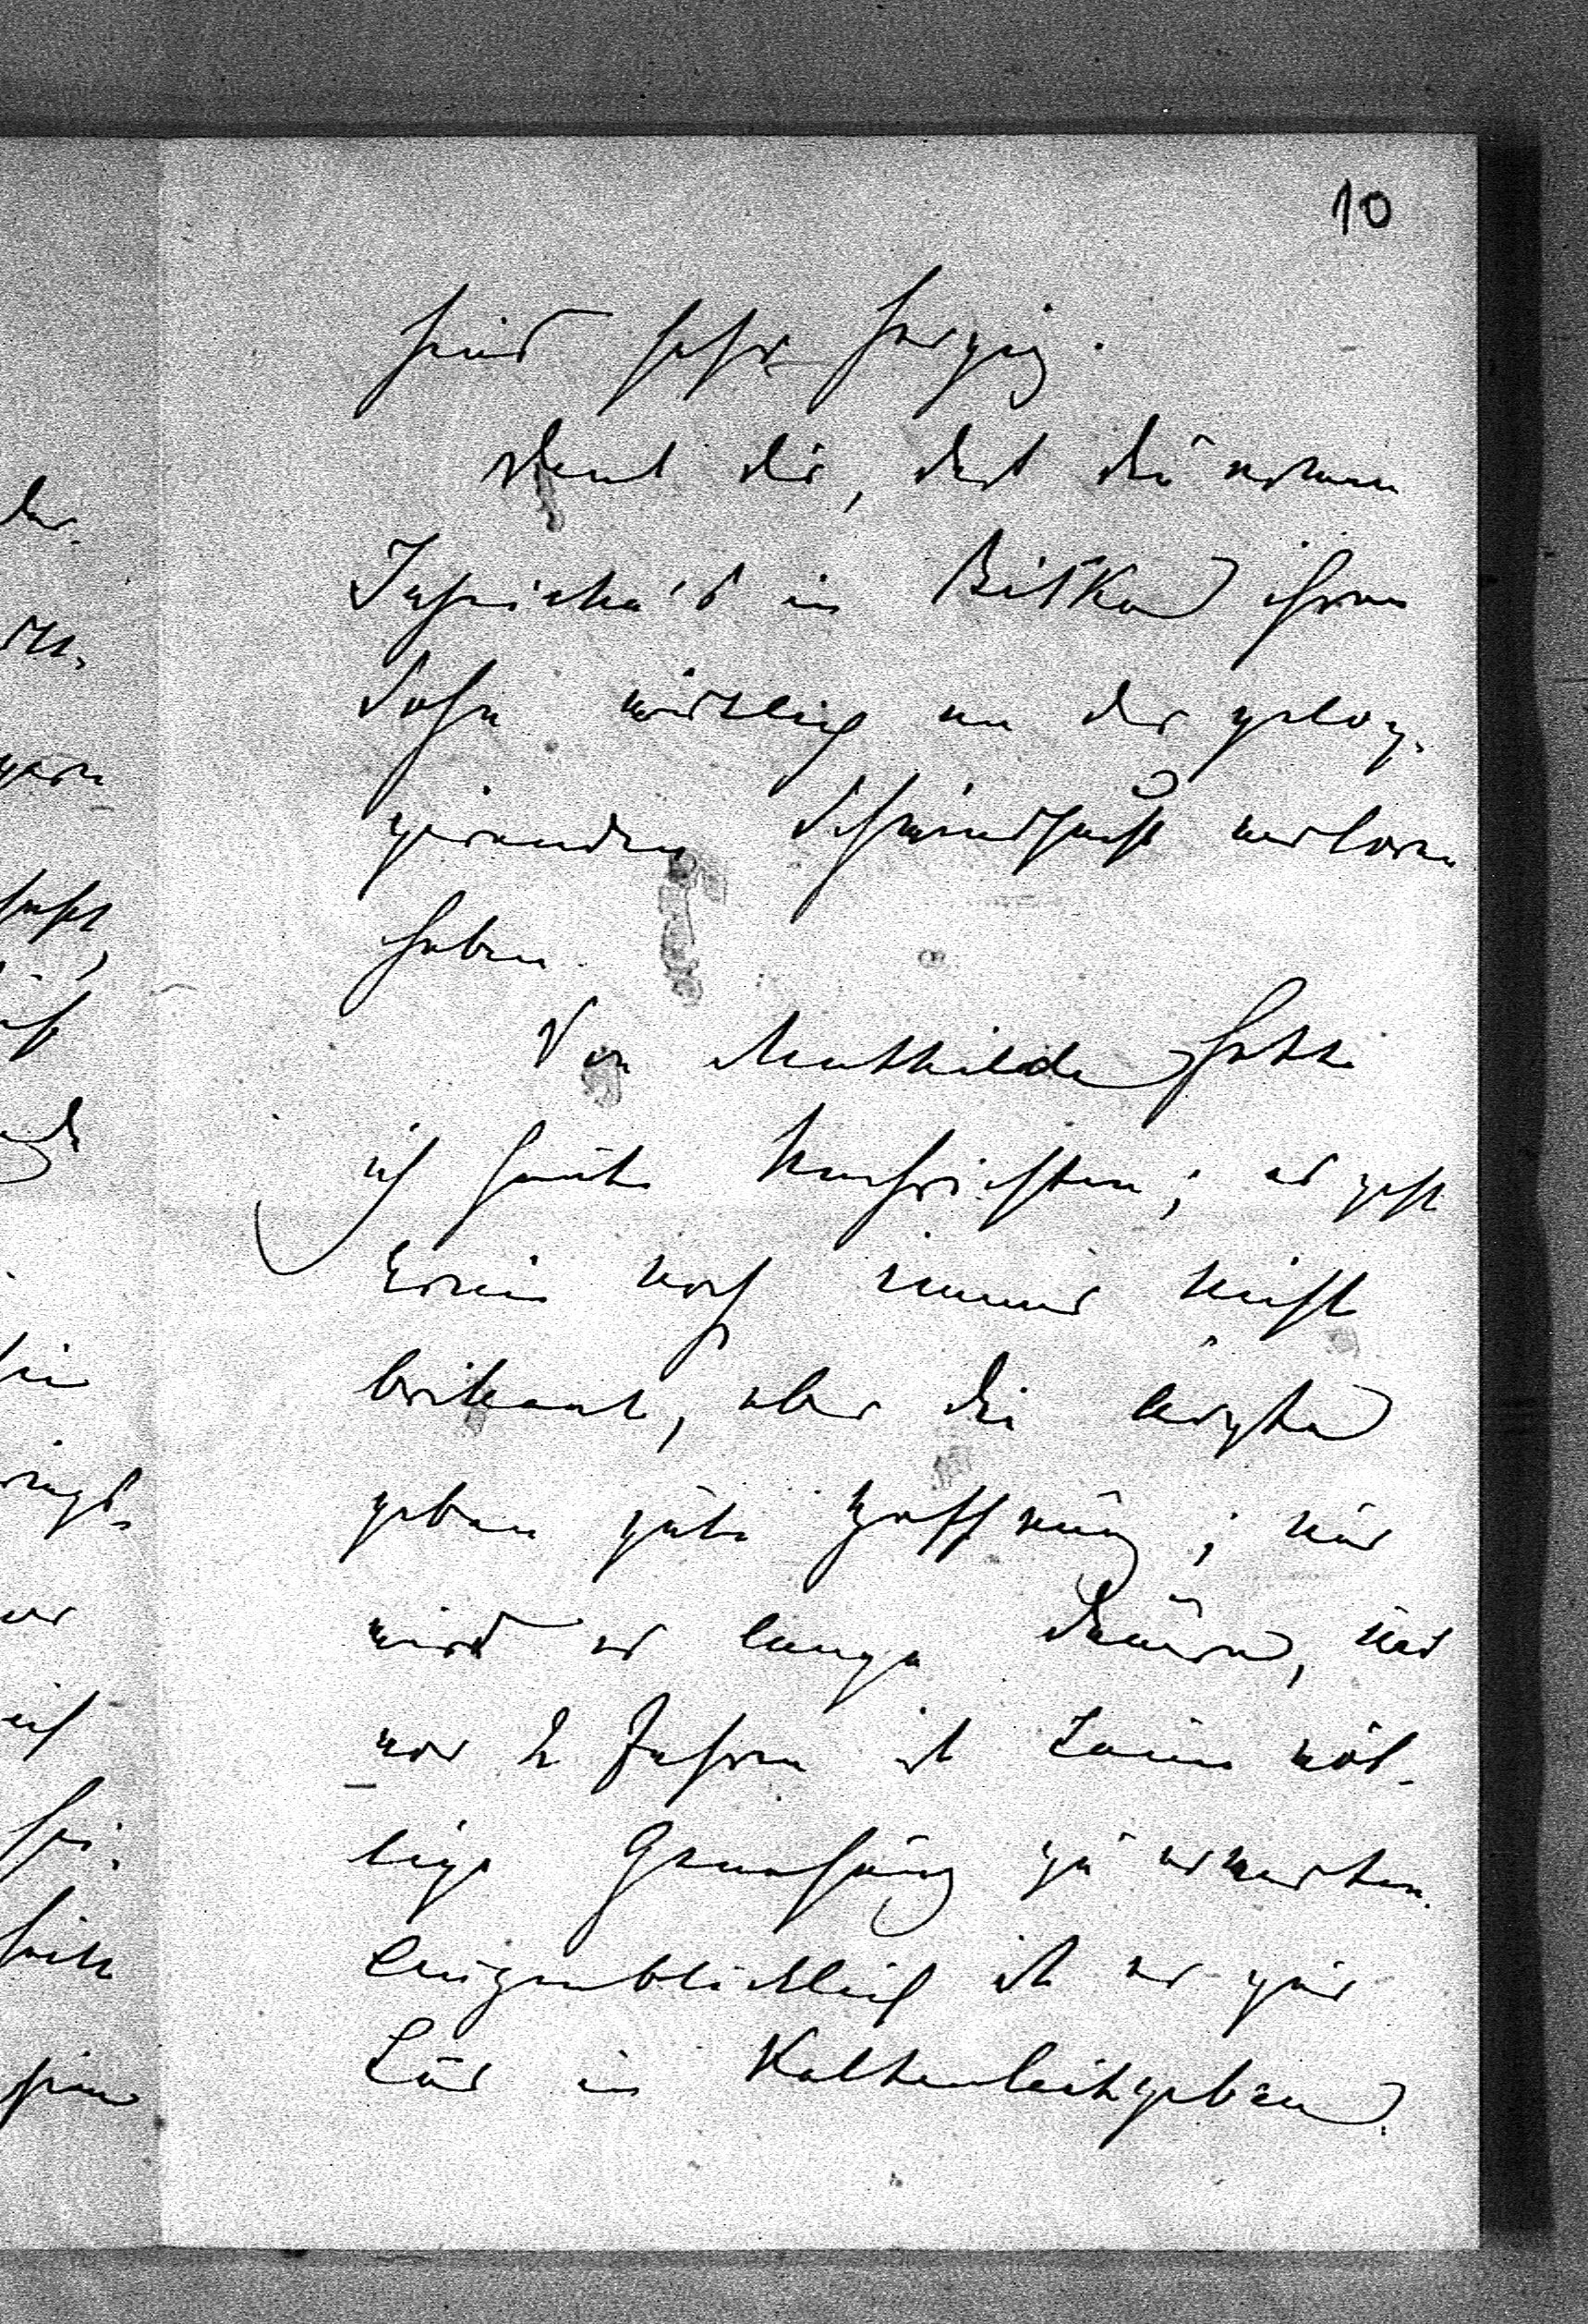 10
sind sehr herzig.
Denk dir, daß die armen
in Bitka ihren
Sohn wirklich an der galop-
pirenden Schwindsucht verloren
haben.
Von Mathilde hatte
ich heute Nachrichten; es geht
Erwin noch immer nicht
brillant, aber die Ärzte
geben gute Hoffnung; nur
wird es lange dauern, und
vor 2 Jahren ist keine völ-
lige Genesung zu erwarten.
Augenblicklich ist er zur
Kur in Kaltenleutgeben.